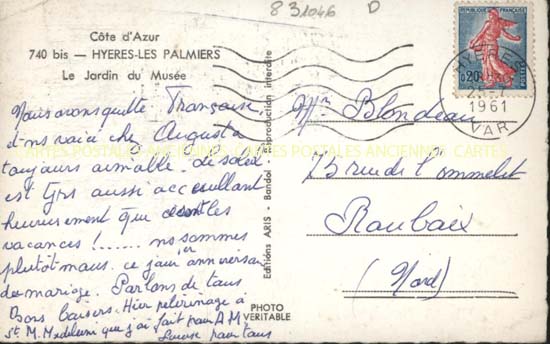 831046 D
Côte d'Azur
740 bis — HYERES-LES PALMIERS
Le Jardin du Musée
Nous avons quitté Françoise,
chez Augusta
toujours aimable. Le soleil
est très aussi accueillant
heureusement que les
vacances ! ...... ns sommes
anniversaire
du mariage. Parlons de tous
Bons baisers. Hier pèlerinage à
que j'ai fait pour A M
pour tous
Editions ARIS - Bandol Reproduction interdite
PHOTO
VERITABLE
REPUBLIQUE FRANÇAISE
0,20
POSTES
HYERES
1961
VAR
Mr Blondeau
75 rue de l'ommelet
Roubaix
(Nord)
CARTES POSTALES ANCIENNES CARTES POSTALES ANCIENNES CARTES